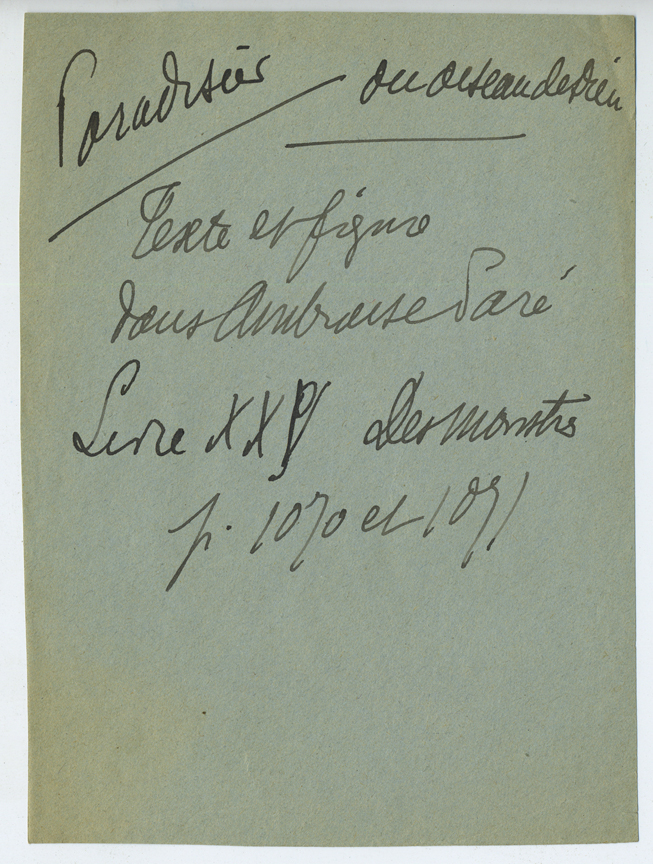 Paradisier ou oiseau de Dieu
Texte et figure
dans Ambroise Paré
Livre XXV Des Monstres
p. 1070 et 1071